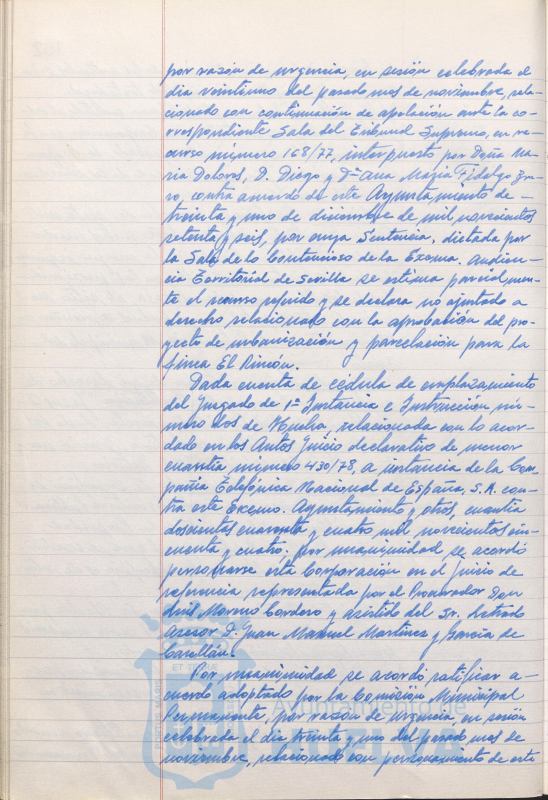 por razón de urgencia, en sesión celebrada el
día veintiuno del pasado mes de noviembre, rela-
cionado con continuación de apelación ante la co-
rrespondiente Sala del Tribunal Supremo, en re-
curso número 168/77, interpuesto por Doña Ma-
ria Dolores, D. Diego y Dª Ana María Fidalgo
contra acuerdo de este Ayuntamiento de
treinta y uno de diciembre de mil novecientos
setenta y seis, por cuya Sentencia, dictada por
la Sala de lo Contencioso de la Excma. Audien-
cia Territorial de Sevilla se estima parcialmen-
te el recurso referido y se declara no ajustado a
derecho relacionado con la aprobación del pro-
yecto de urbanización y parcelación para la
finca El Rincón.
Dada cuenta de cédula de emplazamiento
del Juzgado de 1ª Instancia e Instrucción nú-
mero dos de Huelva, relacionada con lo acor-
dado en los Autos Juicio declarativo de menor
cuantía número 430/78, a instancia de la Com-
pañía Telefónica Nacional de España, S.A. con-
tra este Excmo. Ayuntamiento y otros, cuantía
doscientas cuarenta y cuatro mil novecientas cin-
cuenta y cuatro; por unanimidad se acordó
personarse esta Corporación en el juicio de
referencia representada por el Procurador Don
Moreno Cordero y asistido del Sr. Letrado
Asesor D. Juan Manuel Martínez y García de
Casellán.
Por unanimidad se acordó ratificar a-
cuerdo adoptado por la Comisión Municipal
Permanente, por razón de urgencia, en sesión
celebrada el día treinta y uno del pasado mes de
noviembre, relacionado con personamiento de este
Ayuntamiento de
HUELVA